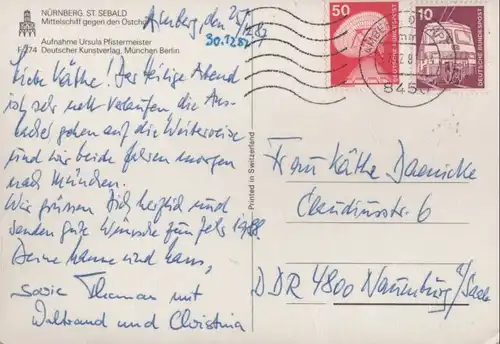 NÜRNBERG, ST. SEBALD
Mittelschiff gegen den Ostchor
F/274
Aufnahme Ursula Pfistermeister
Deutscher Kunstverlag, München Berlin
Amberg, den
30.12.87
Liebe Käthe! Der Heilige Abend
ist sehr nett verlaufen die
gehen auf die Weiterreise
und wir beide fahren morgen
nach München.
Wir grüssen Dich herzlich und
senden gute Wünsche fürs 1988.
Deine Hanne und Hans,
sowie Thomas mit
Waltraud und Christina
Printed in Switzerland
50
DEUTSCHE BUNDESPOST
10
DEUTSCHE BUNDESPOST
8450
Frau Käthe Daenicke
Claudiusstr. 6
DDR 4800 Naumburg a/Saale